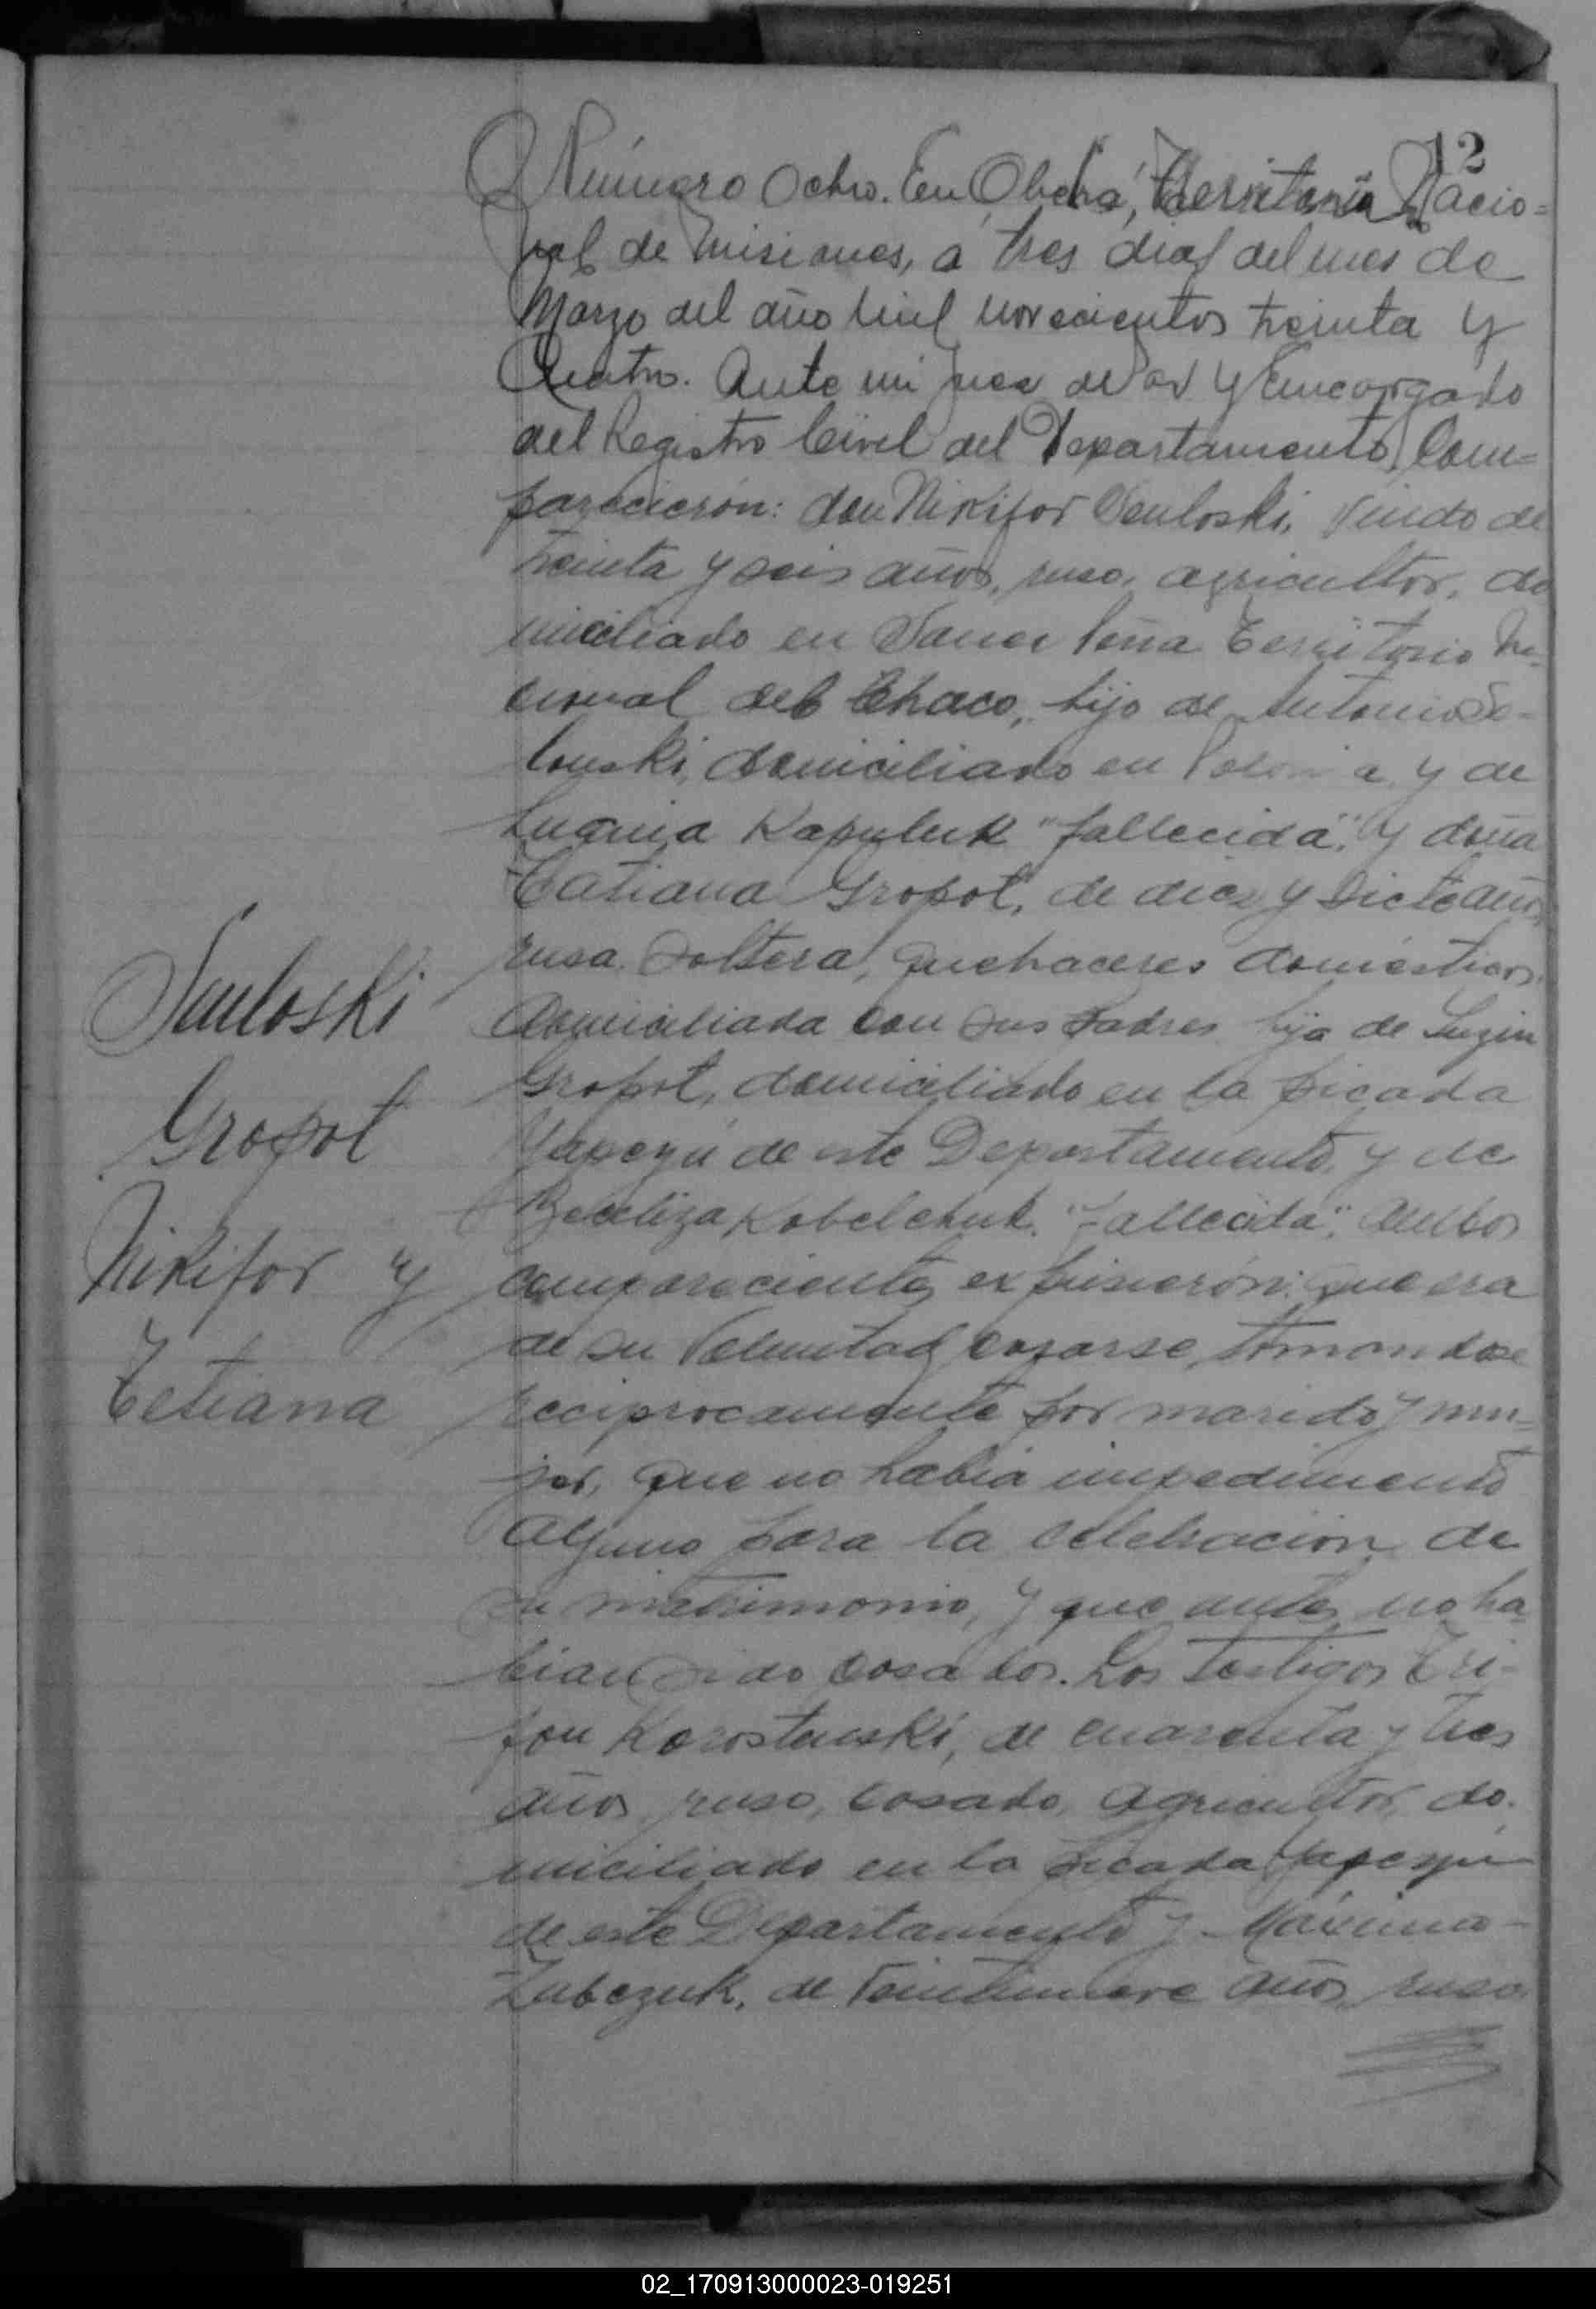 12
Número Ocho. En Oberá, Territorio Nacio=
nal de Misiones, á tres dias del mes de
Marzo del año mil novecientos treinta y
Cuatro. Ante mi Juez de Paz y Encargado
del Registro Civil del Departamento, Com=
parecierón: don Nikifor Seuloski, viudo de
treinta y seis años, ruso, agricultor, do
miciliado en Saenz Peña Territorio Na-
cional del Chaco, hijo de Antonio Se-
louski, domiciliado en Polonia y de
Kapuluk "fallecida", y doña
Tatiana Gropot, de diez y siete años,
rusa, soltera, quehaceres domésticos,
domiciliada con sus padres, hija de
Gropot, domiciliado en la picada
Yapeyú de este Departamento, y de
Kobelchuk. "fallecida". Ambos
comparecientes expusierón: que era
de su voluntad casarse, tomandose
reciprocamente por marido y mu=
jer, que no habia impedimento
alguno para la celebracion de
su matrimonio, y que antes no ha
bian sido casados. Los testigos Tri-
fon Korostenski, de cuarenta y tres
años, ruso, casado, agricultor, do-
miciliado en la picada Yapeyú
de este Departamento y Máximo
Zubczuk, de veintinueve años, ruso
Seuloski
Gropot
Nikifor y
Tetiana
02_170913000023-019251